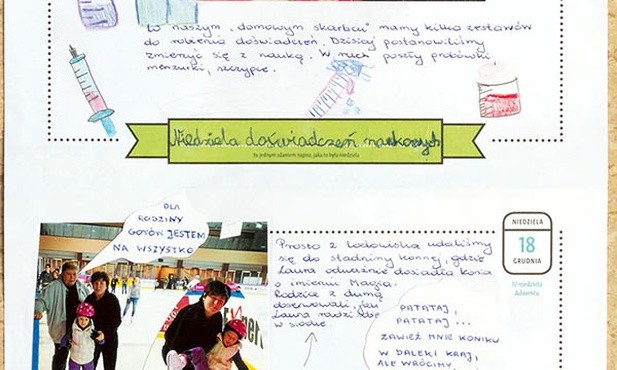 W naszym „domowym skarbcu" mamy kilka zestawów
do robienia doświadczeń. Dzisiaj postanowiliśmy
zmierzyć się z nauką. W ruch poszły probówki
menzurki, szczypce.
Niedziela doświadczeń naukowych
tu jednym zdaniem napisz, jaka to była niedziela
DLA
RODZINY
GOTÓW JESTEM
NA WSZYSTKO
Prosto z lodowiska udaliśmy
się do stadniny konnej, gdzie
Laura odważnie dosiadła konia
o imieniu Magia.
Rodzice z dumą
obserwowali, jak
Laura radzi sobie
w siodle
NIEDZIELA
18
GRUDNIA
IV niedziela
Adwentu
PATATAJ,
PATATAJ...
ZAWIEŹ MNIE KONIKU
W DALEKI KRAJ,
ALE WRÓCIMY